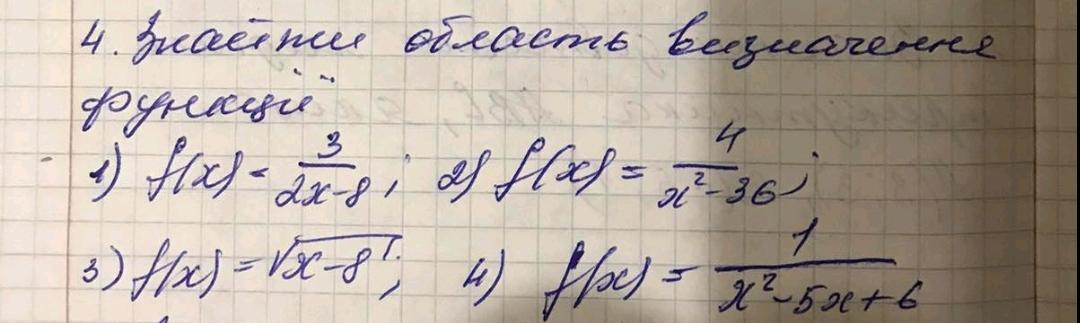 4. Знайти область визначення
функції
1) f(x) = 3/(2x-8); 2) f(x) = 4/(x²-36);
3) f(x) = √(x-8); 4) f(x) = 1/(x²-5x+6)